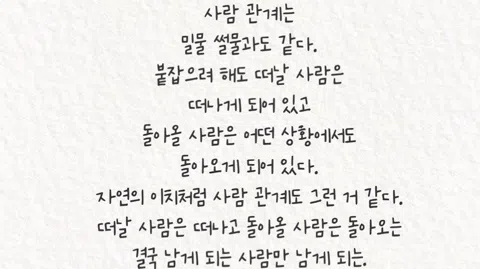 사람 관계는
밀물 썰물과도 같다.
붙잡으려 해도 떠날 사람은
떠나게 되어 있고
돌아올 사람은 어떤 상황에서도
돌아오게 되어 있다.
자연의 이치처럼 사람 관계도 그런 거 같다.
떠날 사람은 떠나고 돌아올 사람은 돌아오는
결국 남게 되는 사람만 남게 되는.